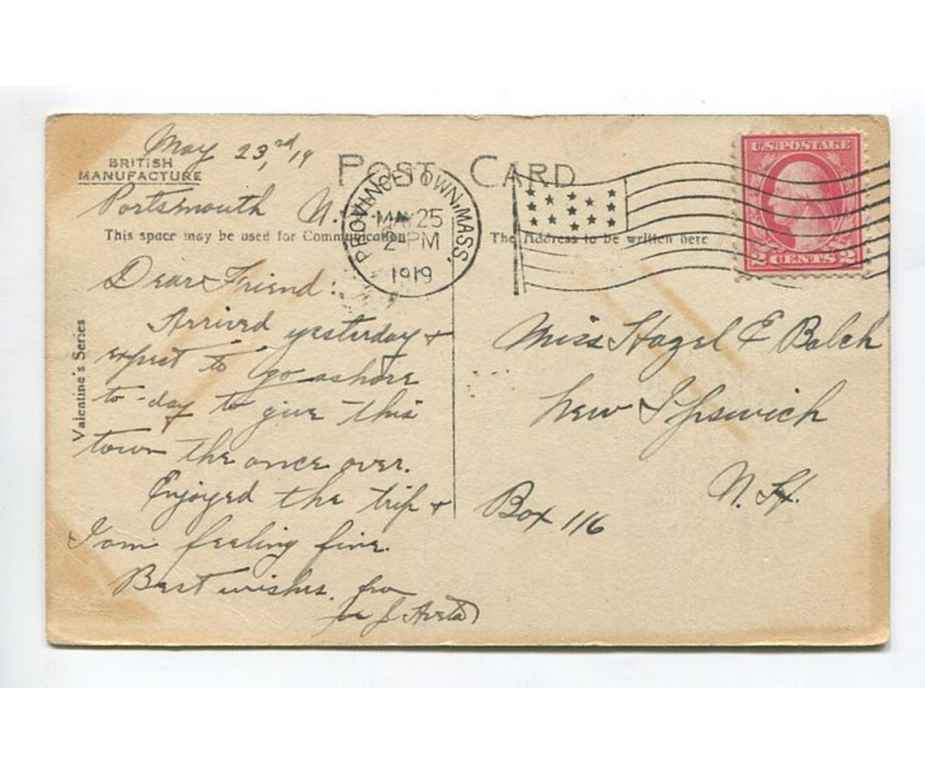 May 23,rd 19
BRITISH
MANUFACTURE
POST CARD
Portsmouth N.
This space may be used for Communication
The Address to be written here
PROVINCETOWN, MASS.
MAY 25
2 PM
1919
U.S. POSTAGE
2 CENTS 2
Valentine's Series
Dear Friend:
Arrived yesterday +
expect to go ashore
to-day to give this
town the once over.
Enjoyed the trip +
I am feeling fine.
Best wishes.
Miss Hazel E Balch
New Ipswich
N. H.
Box 116